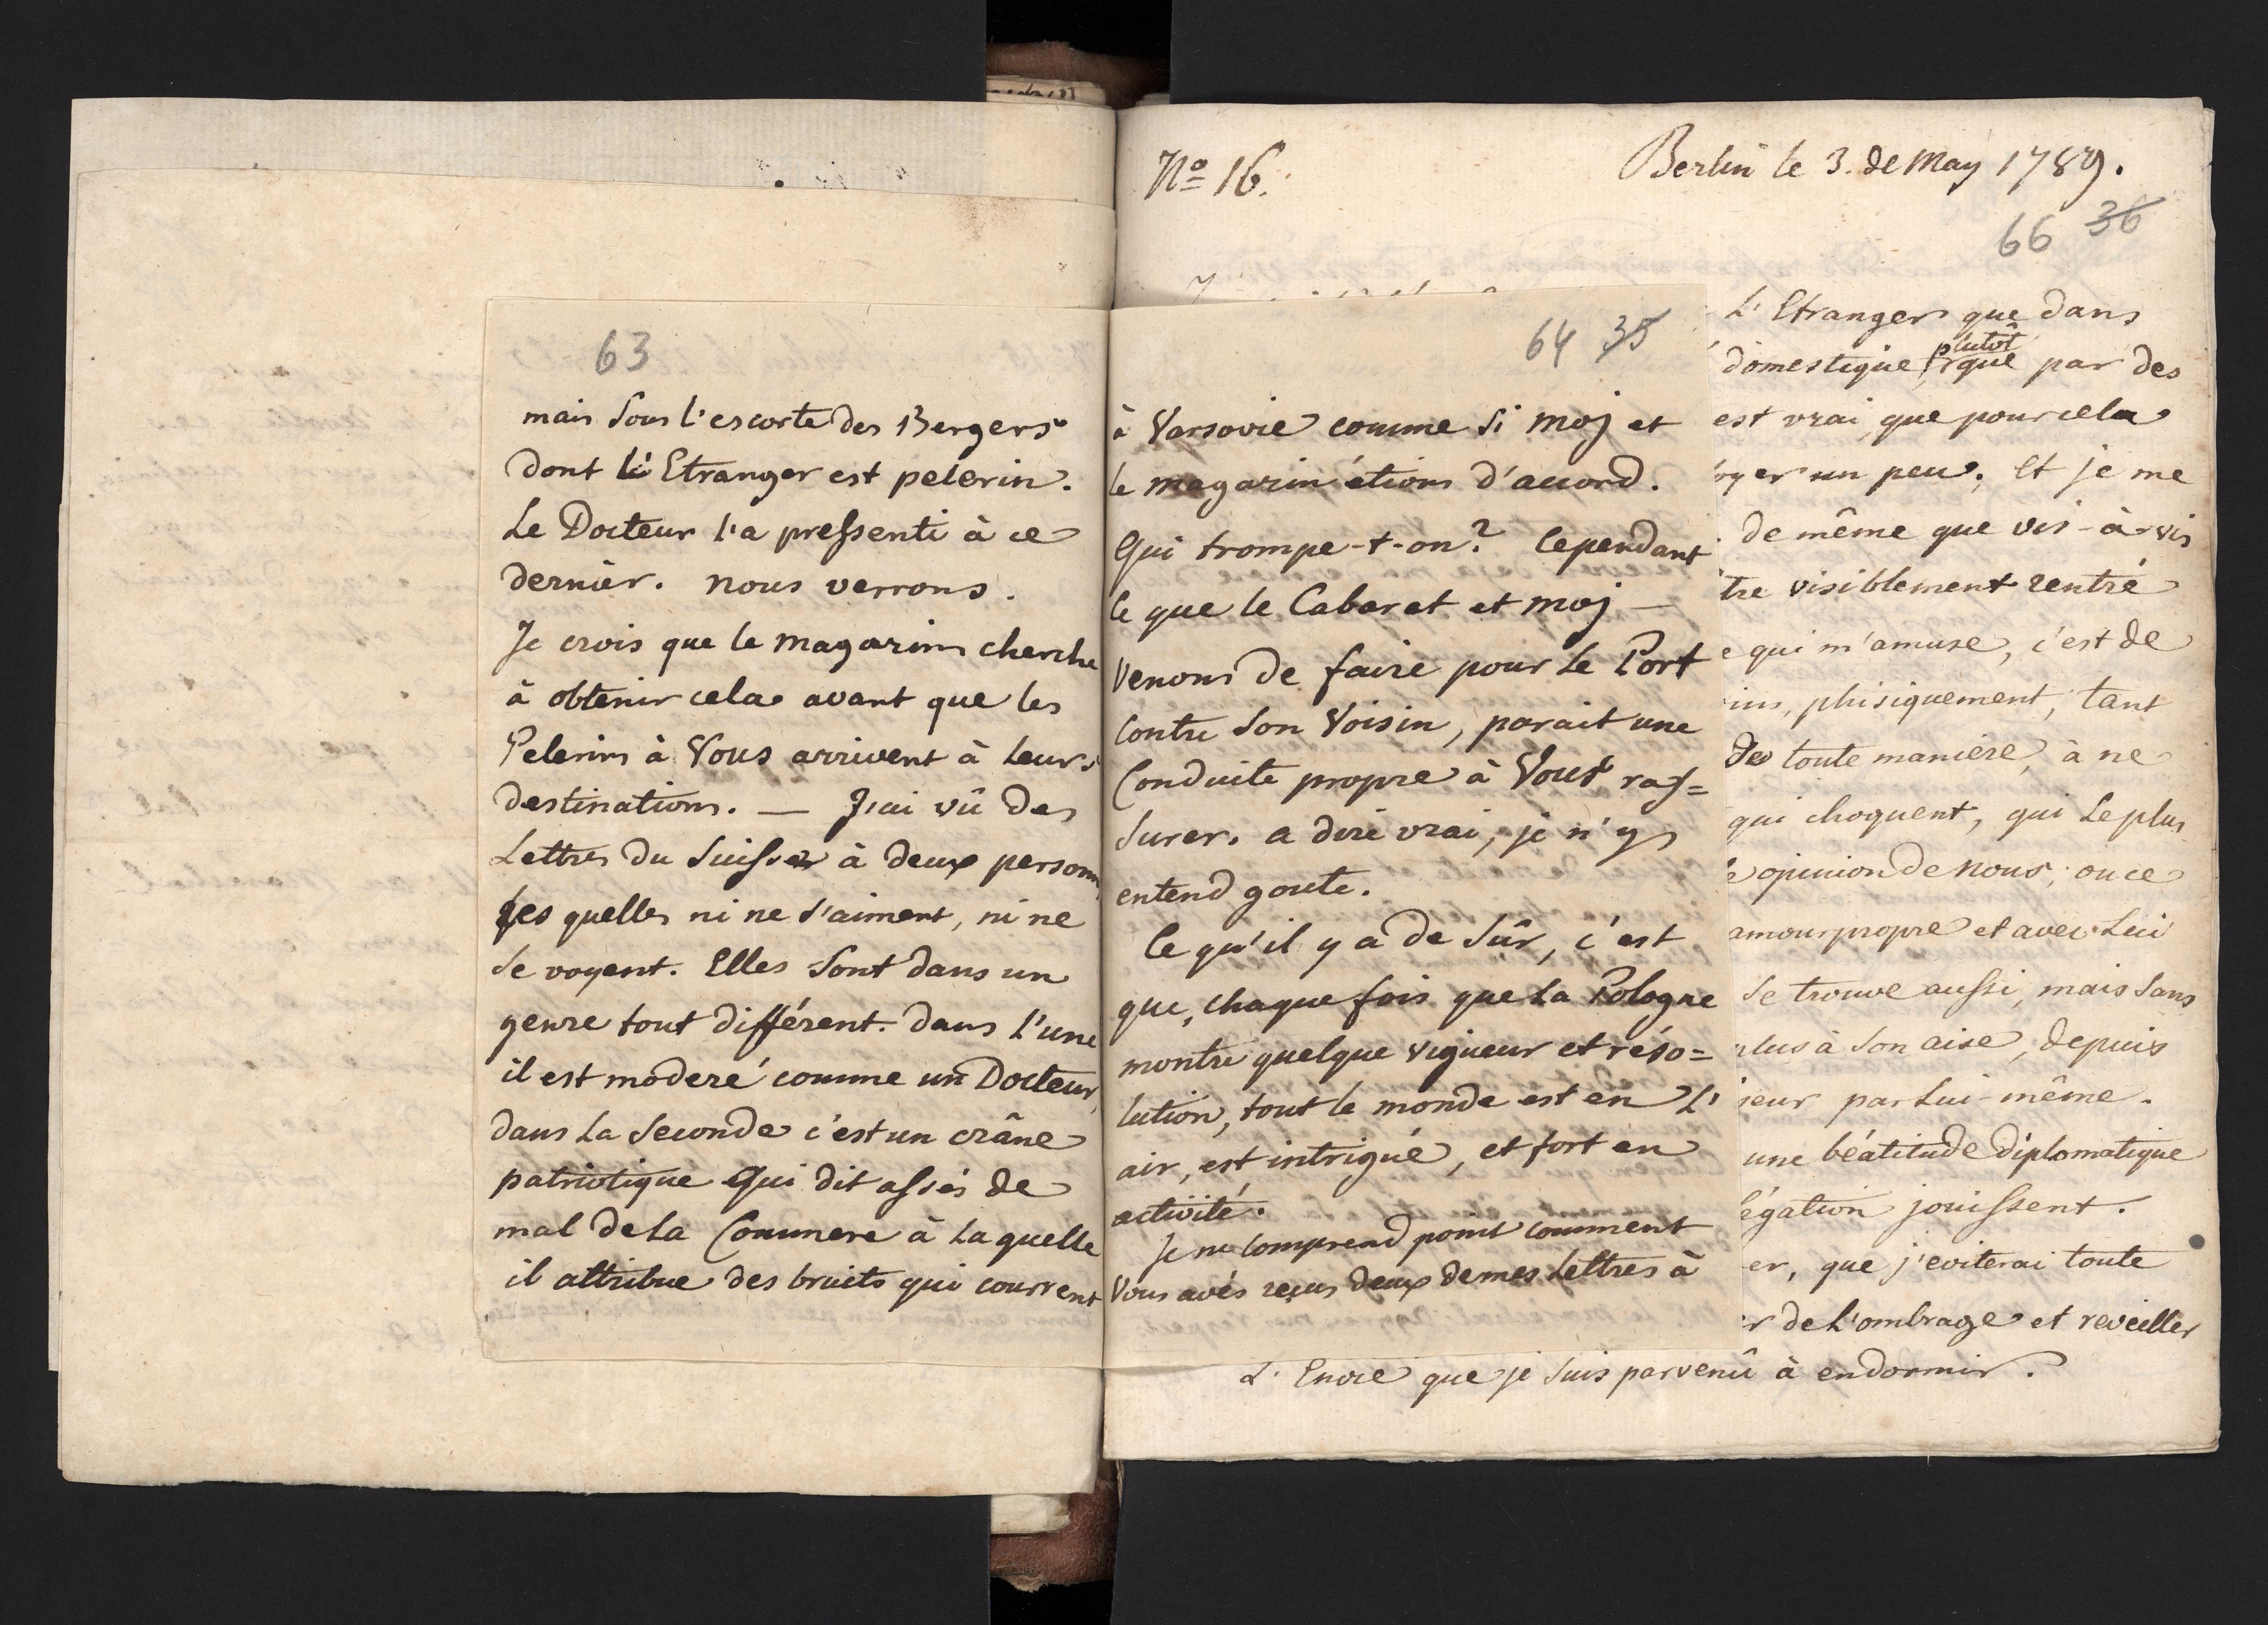 63
mais sous l'escorte des Bergers
dont l'Etranger est pelerin.
Le Docteur l'a pressenti à ce
dernier. nous verrons.
Je crois que le magazin cherche
à obtenir cela avant que les
Pelerins à Vous arrivent à leurs
destinations. — J'ai vû des
Lettres du Suisse à deux person
les quelles ni ne s'aiment, ni ne
se voyent. Elles sont dans un
genre tout différent. dans l'une
il est moderé comme un Docteur,
dans la seconde c'est un crâne
patriotique qui dit assés de
mal de la Commere à la quelle
il attribue des bruits qui courrent
64 35
à Varsovie comme si moj et
le magazin étions d'accord.
Qui trompe-t-on? Cependant
ce que le Cabaret et moj —
venons de faire pour le Port
contre son Voisin, parait une
Conduite propre à Vous ras=
surer. a dire vrai, je n'y
entend goute.
Ce qu'il y a de sûr, c'est
que, chaque fois que la Pologne
montre quelque vigueur et réso=
lution, tout le monde est en l'
air, est intrigué, et fort en
activité.
Je ne comprend point comment
Vous avés reçus deux de mes Lettres à
No 16.
Berlin le 3. de May 1789.
66 36
L'Etranger que dans
domestique, plutôt que par des
est vrai que pour cela
un peu. Et je me
de même que vis-à-vis
tre visiblement rentré
e qui m'amuse, c'est de
ins, phisiquement, tant
de toute manière, à ne
qui choquent, qui le plus
opinion de nous; ou ce
amour propre et avec Lui
se trouve aussi, mais sans
plus à son aise, depuis
ieur par Lui-même.
une béatitude diplomatique
égation jouissent.
er, que j'eviterai toute
r de l'ombrage et reveiller
L'Envie que je suis parvenû à endormir.